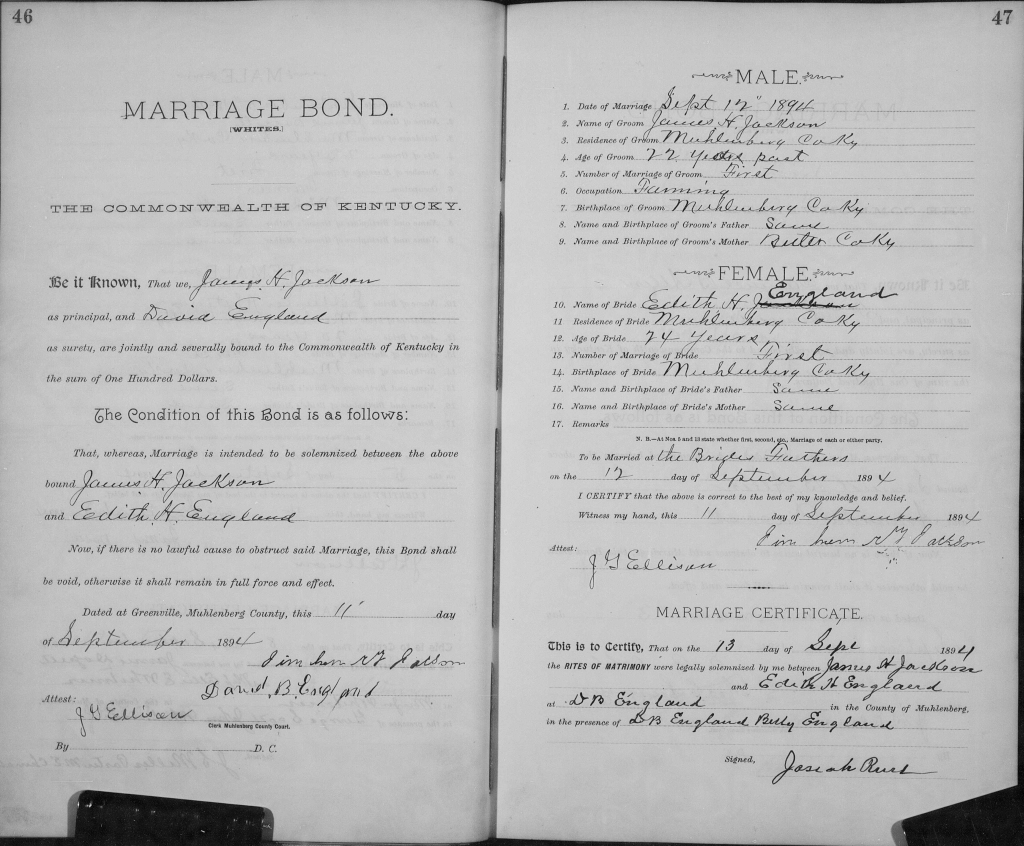 46
MARRIAGE BOND.
[WHITES.]
THE COMMONWEALTH OF KENTUCKY.
Be it Known, That we, James H. Jackson
as principal, and David England
as surety, are jointly and severally bound to the Commonwealth of Kentucky in
the sum of One Hundred Dollars.
The Condition of this Bond is as follows:
That, whereas, Marriage is intended to be solemnized between the above
bound James H. Jackson
and Edith H. England
Now, if there is no lawful cause to obstruct said Marriage, this Bond shall
be void, otherwise it shall remain in full force and effect.
Dated at Greenville, Muhlenberg County, this 11 day
of September 1894
David. B. England
Attest:
J G Ellison
Clerk Muhlenberg County Court.
By D. C.
47
MALE.
1. Date of Marriage Sept 12" 1894
2. Name of Groom James H. Jackson
3. Residence of Groom Muhlenberg Co Ky
4. Age of Groom 22 years past
5. Number of Marriage of Groom First
6. Occupation Farming
7. Birthplace of Groom Muhlenberg Co Ky
8. Name and Birthplace of Groom's Father Same
9. Name and Birthplace of Groom's Mother Butler Co Ky
FEMALE.
10. Name of Bride Edith H. England
11 Residence of Bride Muhlenberg Co Ky
12. Age of Bride 24 Years
13. Number of Marriage of Bride First
14. Birthplace of Bride Muhlenberg Co Ky
15. Name and Birthplace of Bride's Father Same
16. Name and Birthplace of Bride's Mother Same
17. Remarks
N. B.—At Nos 5 and 13 state whether first, second, etc., Marriage of each or either party.
To be Married at the Brides Fathers
on the 12 day of September 1894
I CERTIFY that the above is correct to the best of my knowledge and belief.
Witness my hand, this 11 day of September 1894
Attest:
J G Ellison
MARRIAGE CERTIFICATE.
This is to Certify, That on the 13 day of Sept 1894
the RITES OF MATRIMONY were legally solemnized by me between James H Jackson
and Edith H England
at D B England in the County of Muhlenberg,
in the presence of D B England Billy England
Signed,
Josiah